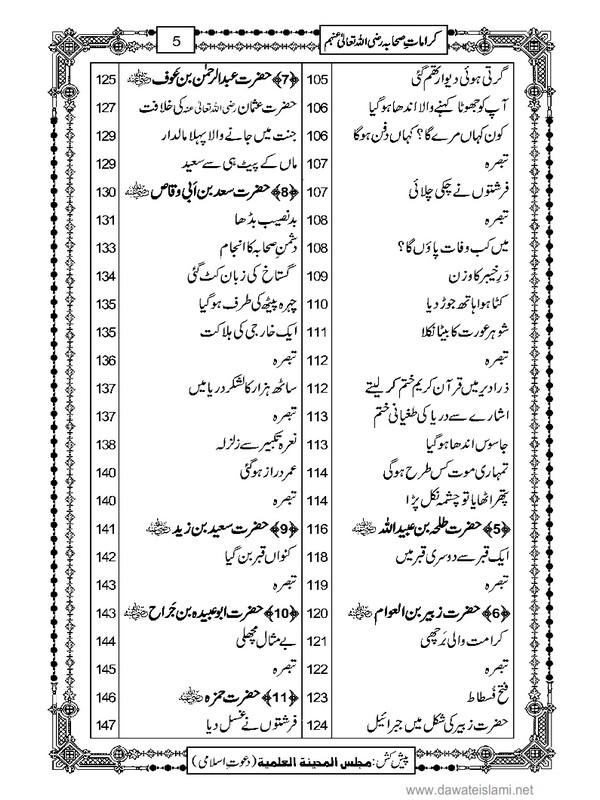 کرامات صحابہ رضی اللہ تعالیٰ عنہم
5
گرتی ہوئی دیوار تھم گئی 105
آپ کو جھوٹا کہنے والا اندھا ہوگیا 106
کون کہاں مرے گا؟ کہاں دفن ہوگا 106
تبصرہ 107
فرشتوں نے چکی چلائی 107
تبصرہ 108
میں کب وفات پاؤں گا؟ 108
درِ خیبر کا وزن 109
کٹا ہوا ہاتھ جوڑ دیا 110
شوہر عورت کا بیٹا نکلا 111
تبصرہ 112
ذرا دیر میں قرآن کریم ختم کر لیتے 112
اشارے سے دریا کی طغیانی ختم 113
جاسوس اندھا ہوگیا 113
تمہاری موت کس طرح ہوگی 114
پتھر اٹھایا تو چشمہ نکل پڑا 114
﴿5﴾ حضرت طلحہ بن عبید اللہ 116
ایک قبر سے دوسری قبر میں 118
تبصرہ 119
﴿6﴾ حضرت زبیر بن العوام 120
کرامت والی برچھی 121
تبصرہ 122
فتح فسطاط 123
حضرت زبیر کی شکل میں جبرائیل 124
﴿7﴾ حضرت عبدالرحمٰن بن عوف 125
حضرت عثمان رضی اللہ تعالیٰ عنہ کی خلافت 127
جنت میں جانے والا پہلا مالدار 129
ماں کے پیٹ ہی سے سعید 129
﴿8﴾ حضرت سعد بن أبی وقاص 130
بدنصیب بڈھا 131
دشمنِ صحابہ کا انجام 133
گستاخ کی زبان کٹ گئی 134
چہرہ پیٹھ کی طرف ہوگیا 135
ایک خارجی کی ہلاکت 135
تبصرہ 136
ساٹھ ہزار کا لشکر دریا میں 137
تبصرہ 137
نعرہ تکبیر سے زلزلہ 138
عمر دراز ہوگئی 140
تبصرہ 140
﴿9﴾ حضرت سعید بن زید 141
کنواں قبر بن گیا 142
تبصرہ 143
﴿10﴾ حضرت ابو عبیدہ بن جراح 143
بے مثال مچھلی 144
تبصرہ 145
﴿11﴾ حضرت حمزہ 146
فرشتوں نے غسل دیا 147
پیش کش: مجلس المدینة العلمیة (دعوت اسلامی)
www.dawateislami.net